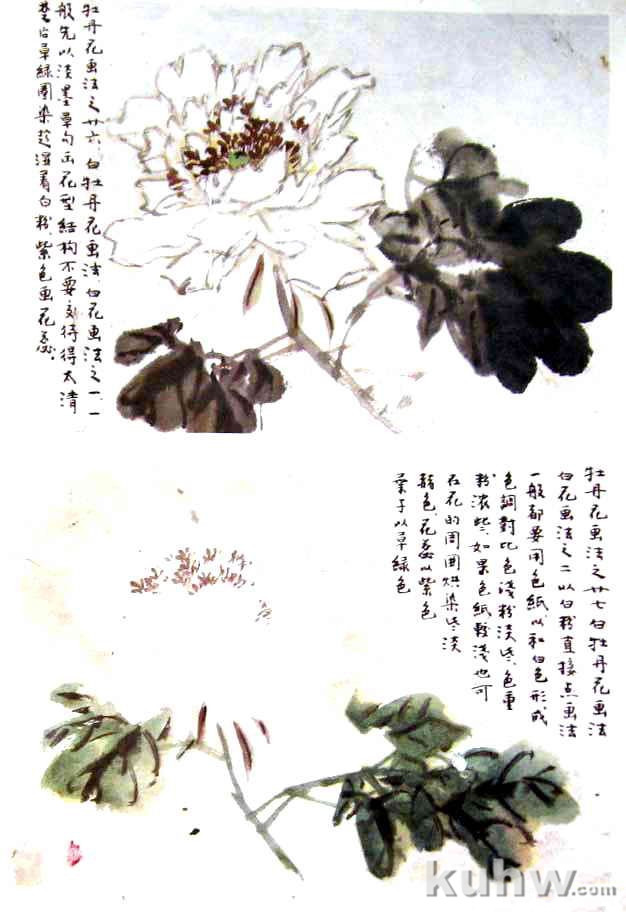 牡丹花画法之廿六、白牡丹花画法、白花画法之一、一
般先以淡墨草勾出花型结构不要交待得太清
楚后草绿圈染趁湿着白粉、紫色画花蕊。
牡丹花画法之廿七白牡丹花画法
白花画法之二以白粉直接点画法
一般都要用色紙以和白色形成
色調對比色淺粉淡些、色重
粉浓些、如果色紙較淺也可
在花的周围烘染些淡
颜色、花蕊以紫色
葉子以草綠色
kuhw.com